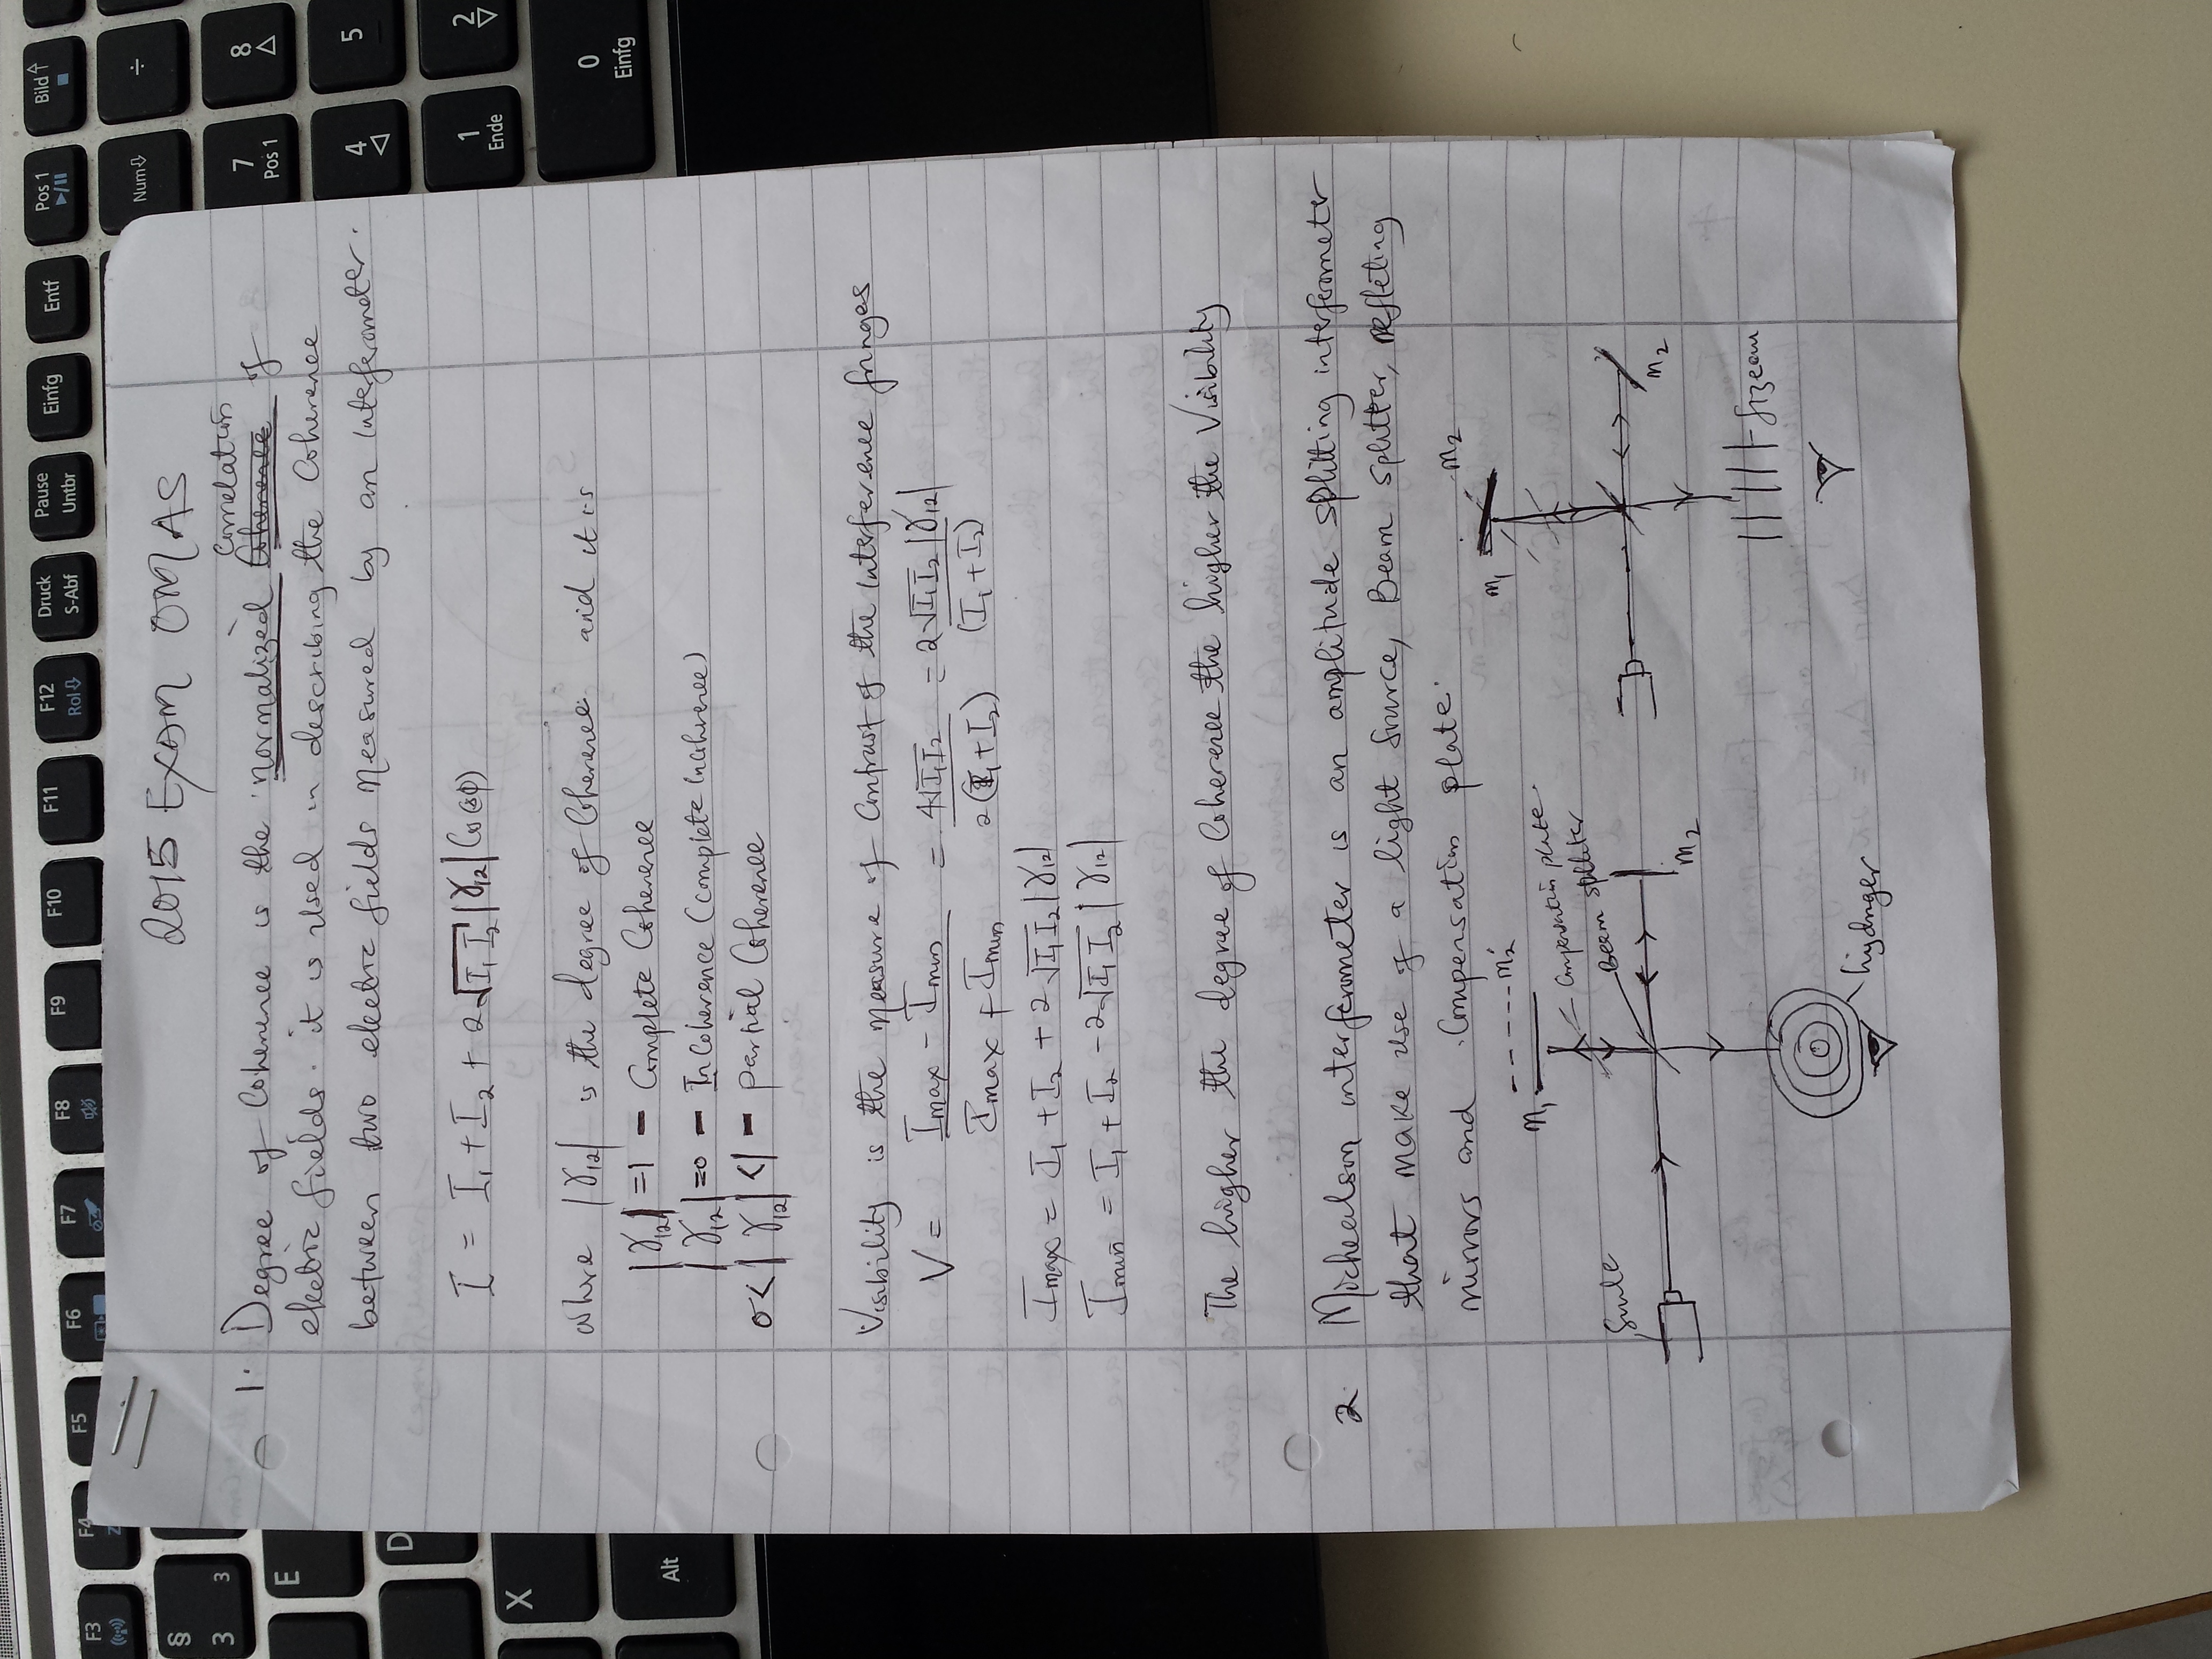 2015 EXAM OMAS
1. Degree of Coherence is the normalized Correlation of
electric fields. it is used in describing the Coherence
between two electric fields measured by an interferometer.
I = I₁ + I₂ + 2√I₁I₂ |γ₁₂| Cos(Δφ)
where |γ₁₂| is the degree of Coherence and it is
|γ₁₂| = 1 - Complete Coherence
|γ₁₂| = 0 - InCoherence (Complete Incoherence)
0 < |γ₁₂| < 1 - partial Coherence
Visibility is the measure of Contrast of the interference fringes
V = Imax - Imin / Imax + Imin = 4√I₁I₂ / 2(I₁ + I₂) = 2√I₁I₂ |γ₁₂| / (I₁ + I₂)
Imax = I₁ + I₂ + 2√I₁I₂ |γ₁₂|
Imin = I₁ + I₂ - 2√I₁I₂ |γ₁₂|
The higher the degree of Coherence the higher the Visibility
2. Michealson interferometer is an amplitude splitting interferometer
that make use of a light source, Beam splitter, reflecting
mirrors and Compensation plate.
M₁ M₂'
Compensation plate
Beam splitter
M₂
hidnger
M₁ M₂'
M₂
fizeau
F3
F4
F5
F6
F7
F8
F9
F10
F11
F12
Rol
Druck
S-Abf
Pause
Untbr
Einfg
Entf
Pos 1
Bild ↑
§
3
3
E
D
X
Alt
Num
÷
7
Pos 1
8
4
5
1
Ende
2
0
Einfg